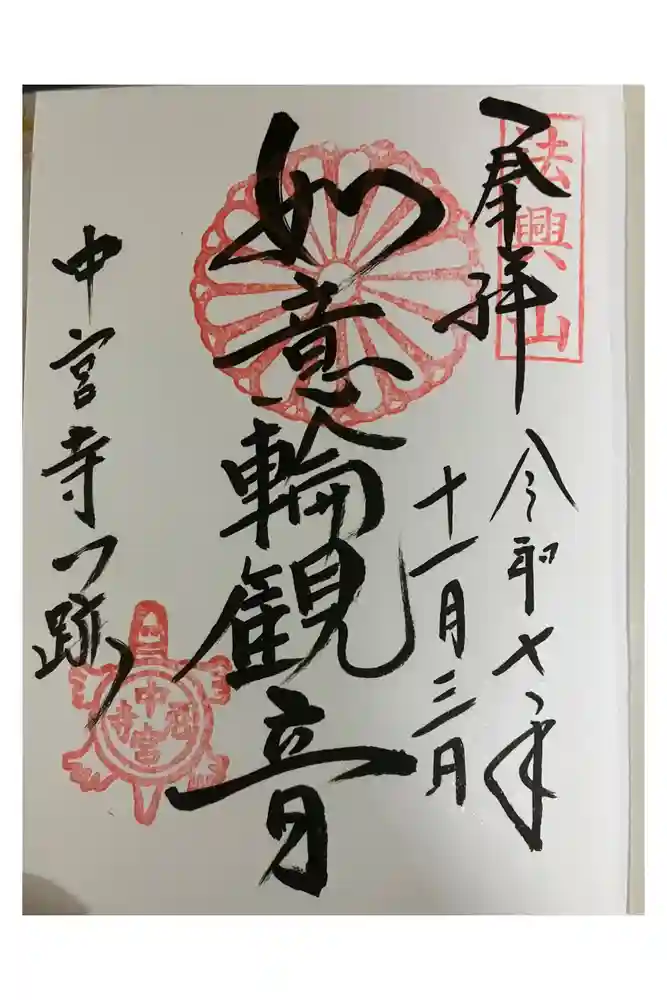 法興山
奉拝
令和七年
十一月三日
如意輪観音
中宮寺
跡
中宮寺